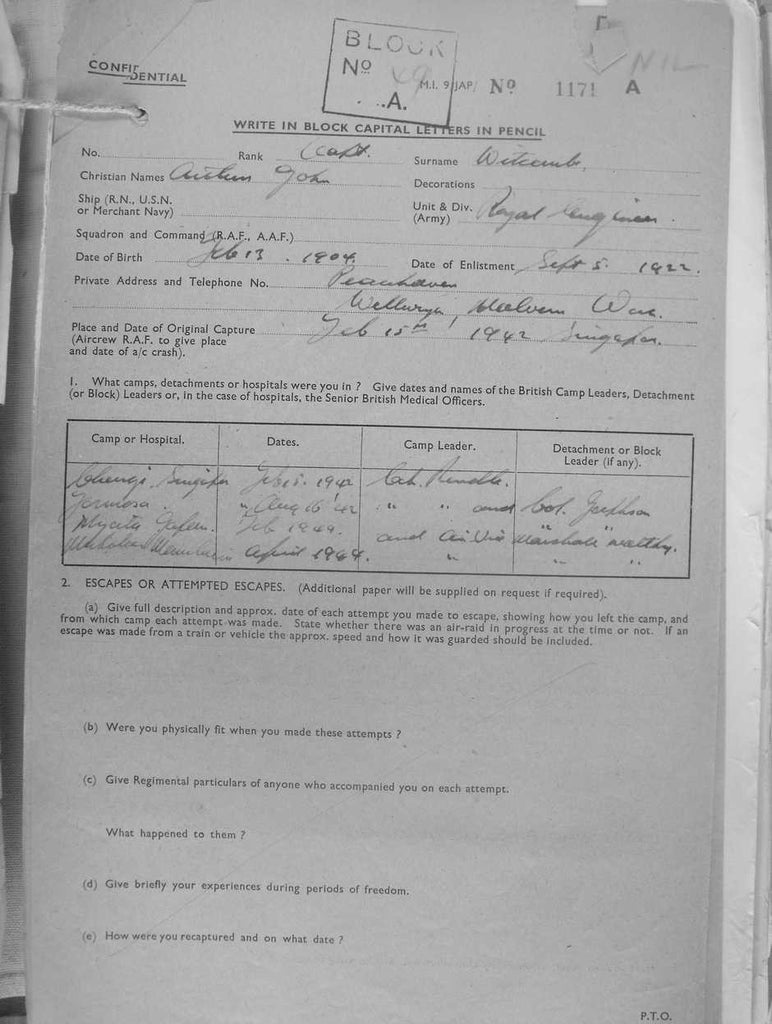 CONFIDENTIAL
BLOCK
Nº 49
A.
NIL
M.I. 9/JAP/ Nº 1171 A
WRITE IN BLOCK CAPITAL LETTERS IN PENCIL
No. Rank Capt. Surname Witcomb.
Christian Names Arthur John Decorations
Ship (R.N., U.S.N.
or Merchant Navy) Unit & Div. (Army) Royal Engineers.
Squadron and Command (R.A.F., A.A.F.)
Date of Birth Feb 13. 1904. Date of Enlistment Sept 5. 1922.
Private Address and Telephone No. Peacehaven
Malvern,
Place and Date of Original Capture Feb 15th 1942 Singapore.
(Aircrew R.A.F. to give place
and date of a/c crash).
1. What camps, detachments or hospitals were you in ? Give dates and names of the British Camp Leaders, Detachment
(or Block) Leaders or, in the case of hospitals, the Senior British Medical Officers.
Camp or Hospital. Dates. Camp Leader. Detachment or Block
Leader (if any).
Changi. Singapore Feb 15. 1942 Col.
Formosa. " Aug 16 '42 " " and Col.
Japan. Feb and Air Vice Marshall Maltby.
April 1944. " " "
2. ESCAPES OR ATTEMPTED ESCAPES. (Additional paper will be supplied on request if required).
(a) Give full description and approx. date of each attempt you made to escape, showing how you left the camp, and
from which camp each attempt was made. State whether there was an air-raid in progress at the time or not. If an
escape was made from a train or vehicle the approx. speed and how it was guarded should be included.
(b) Were you physically fit when you made these attempts ?
(c) Give Regimental particulars of anyone who accompanied you on each attempt.
What happened to them ?
(d) Give briefly your experiences during periods of freedom.
(e) How were you recaptured and on what date ?
P.T.O.